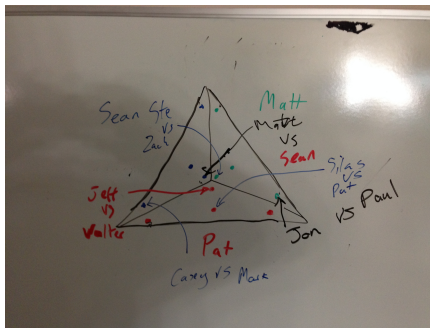 Sean Ste
vs
Zach
Matt
Matt
vs
Sean
Silas
vs
Pat
Jeff
vs
Walter
Jon
vs Paul
Pat
Casey vs Mark